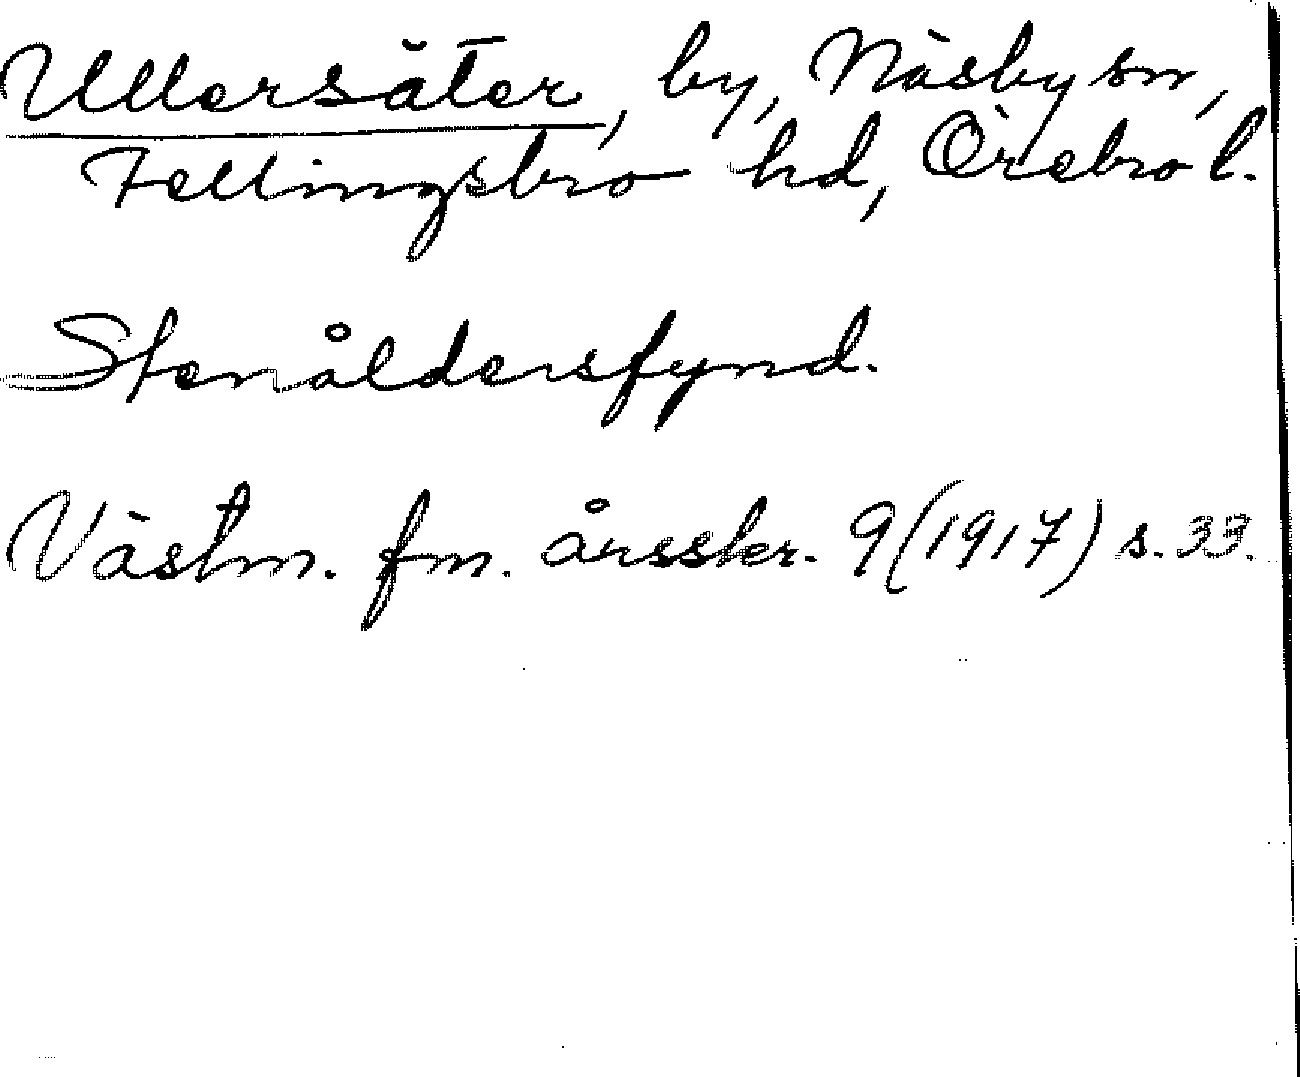 Ullersäter, by, Näsby sn,
Fellingsbro hd, Örebro l.
Stenåldersfynd.
Västm. fm. årsskr. 9 (1917) s. 33.